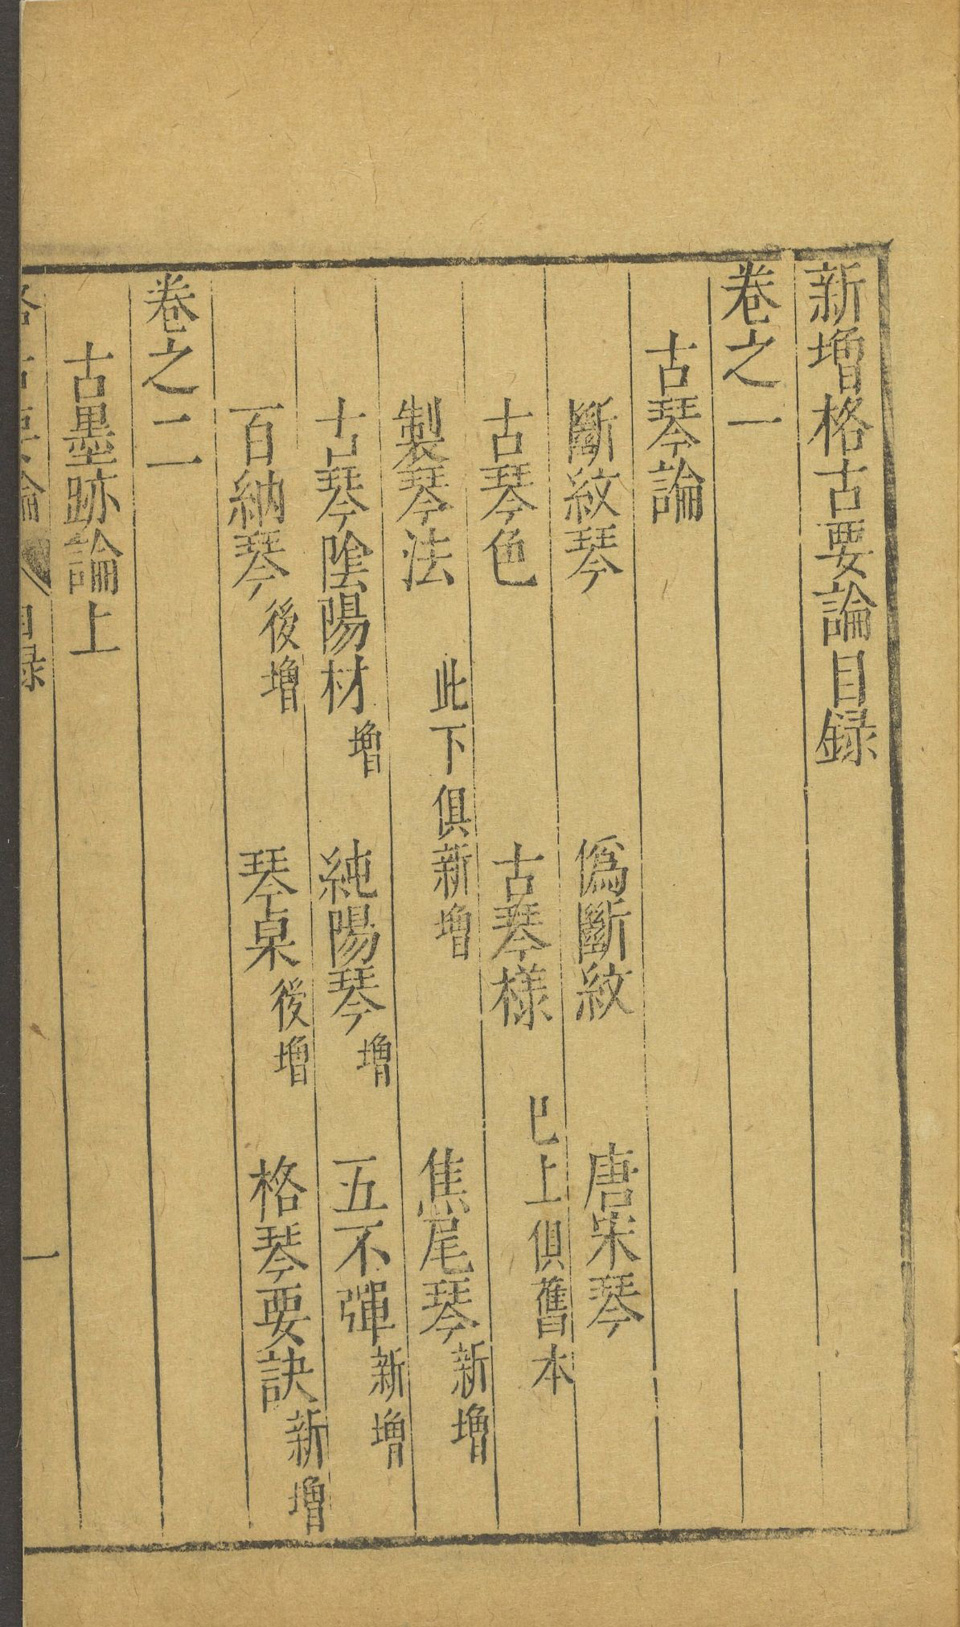 新增格古要論目録
卷之一
古琴論
斷紋琴 僞斷紋 唐宋琴
古琴色 古琴樣 已上俱舊本
製琴法 此下俱新增 焦尾琴 新增
古琴隂陽材 增 純陽琴 增 五不彈 新增
百納琴 後增 琴桌 後增 格琴要訣 新增
卷之二
古墨跡論上
格古要論 目録 一